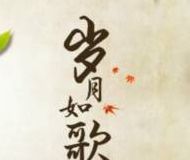 岁月如歌